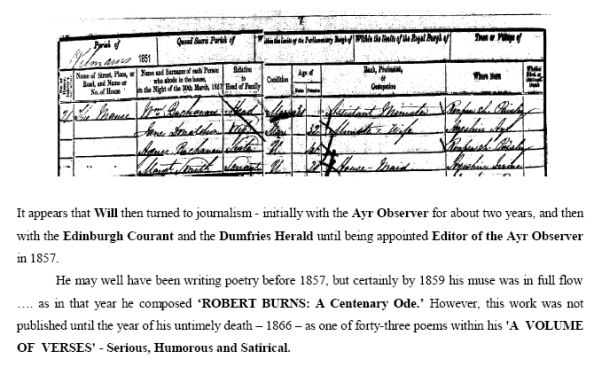 7
Parish of
Quoad Sacra Parish of
Within the limits of the Parliamentary Burgh of
Within the limits of the Royal Burgh of
Town or Village of
Kilmaurs 1851
Name of Street, Place, or Road, and Name or No. of House
Name and Surname of each Person who abode in the house, on the Night of the 30th March, 1851
Relation to Head of Family
Condition
Age of
Rank, Profession, or Occupation
Where Born
21 The Manse Wm Buchanan Head Assistant Minister Paisley
Jane Donaldson Wife Mar 32 Minister's Wife Ayrshire Ayr
Agnes Buchanan Sister U Paisley
Margt Smith Servant U 20 House-Maid Ayrshire Irvine
It appears that Will then turned to journalism - initially with the Ayr Observer for about two years, and then
with the Edinburgh Courant and the Dumfries Herald until being appointed Editor of the Ayr Observer
in 1857.
He may well have been writing poetry before 1857, but certainly by 1859 his muse was in full flow
…. as in that year he composed ‘ROBERT BURNS: A Centenary Ode.’ However, this work was not
published until the year of his untimely death – 1866 – as one of forty-three poems within his 'A VOLUME
OF VERSES' - Serious, Humorous and Satirical.